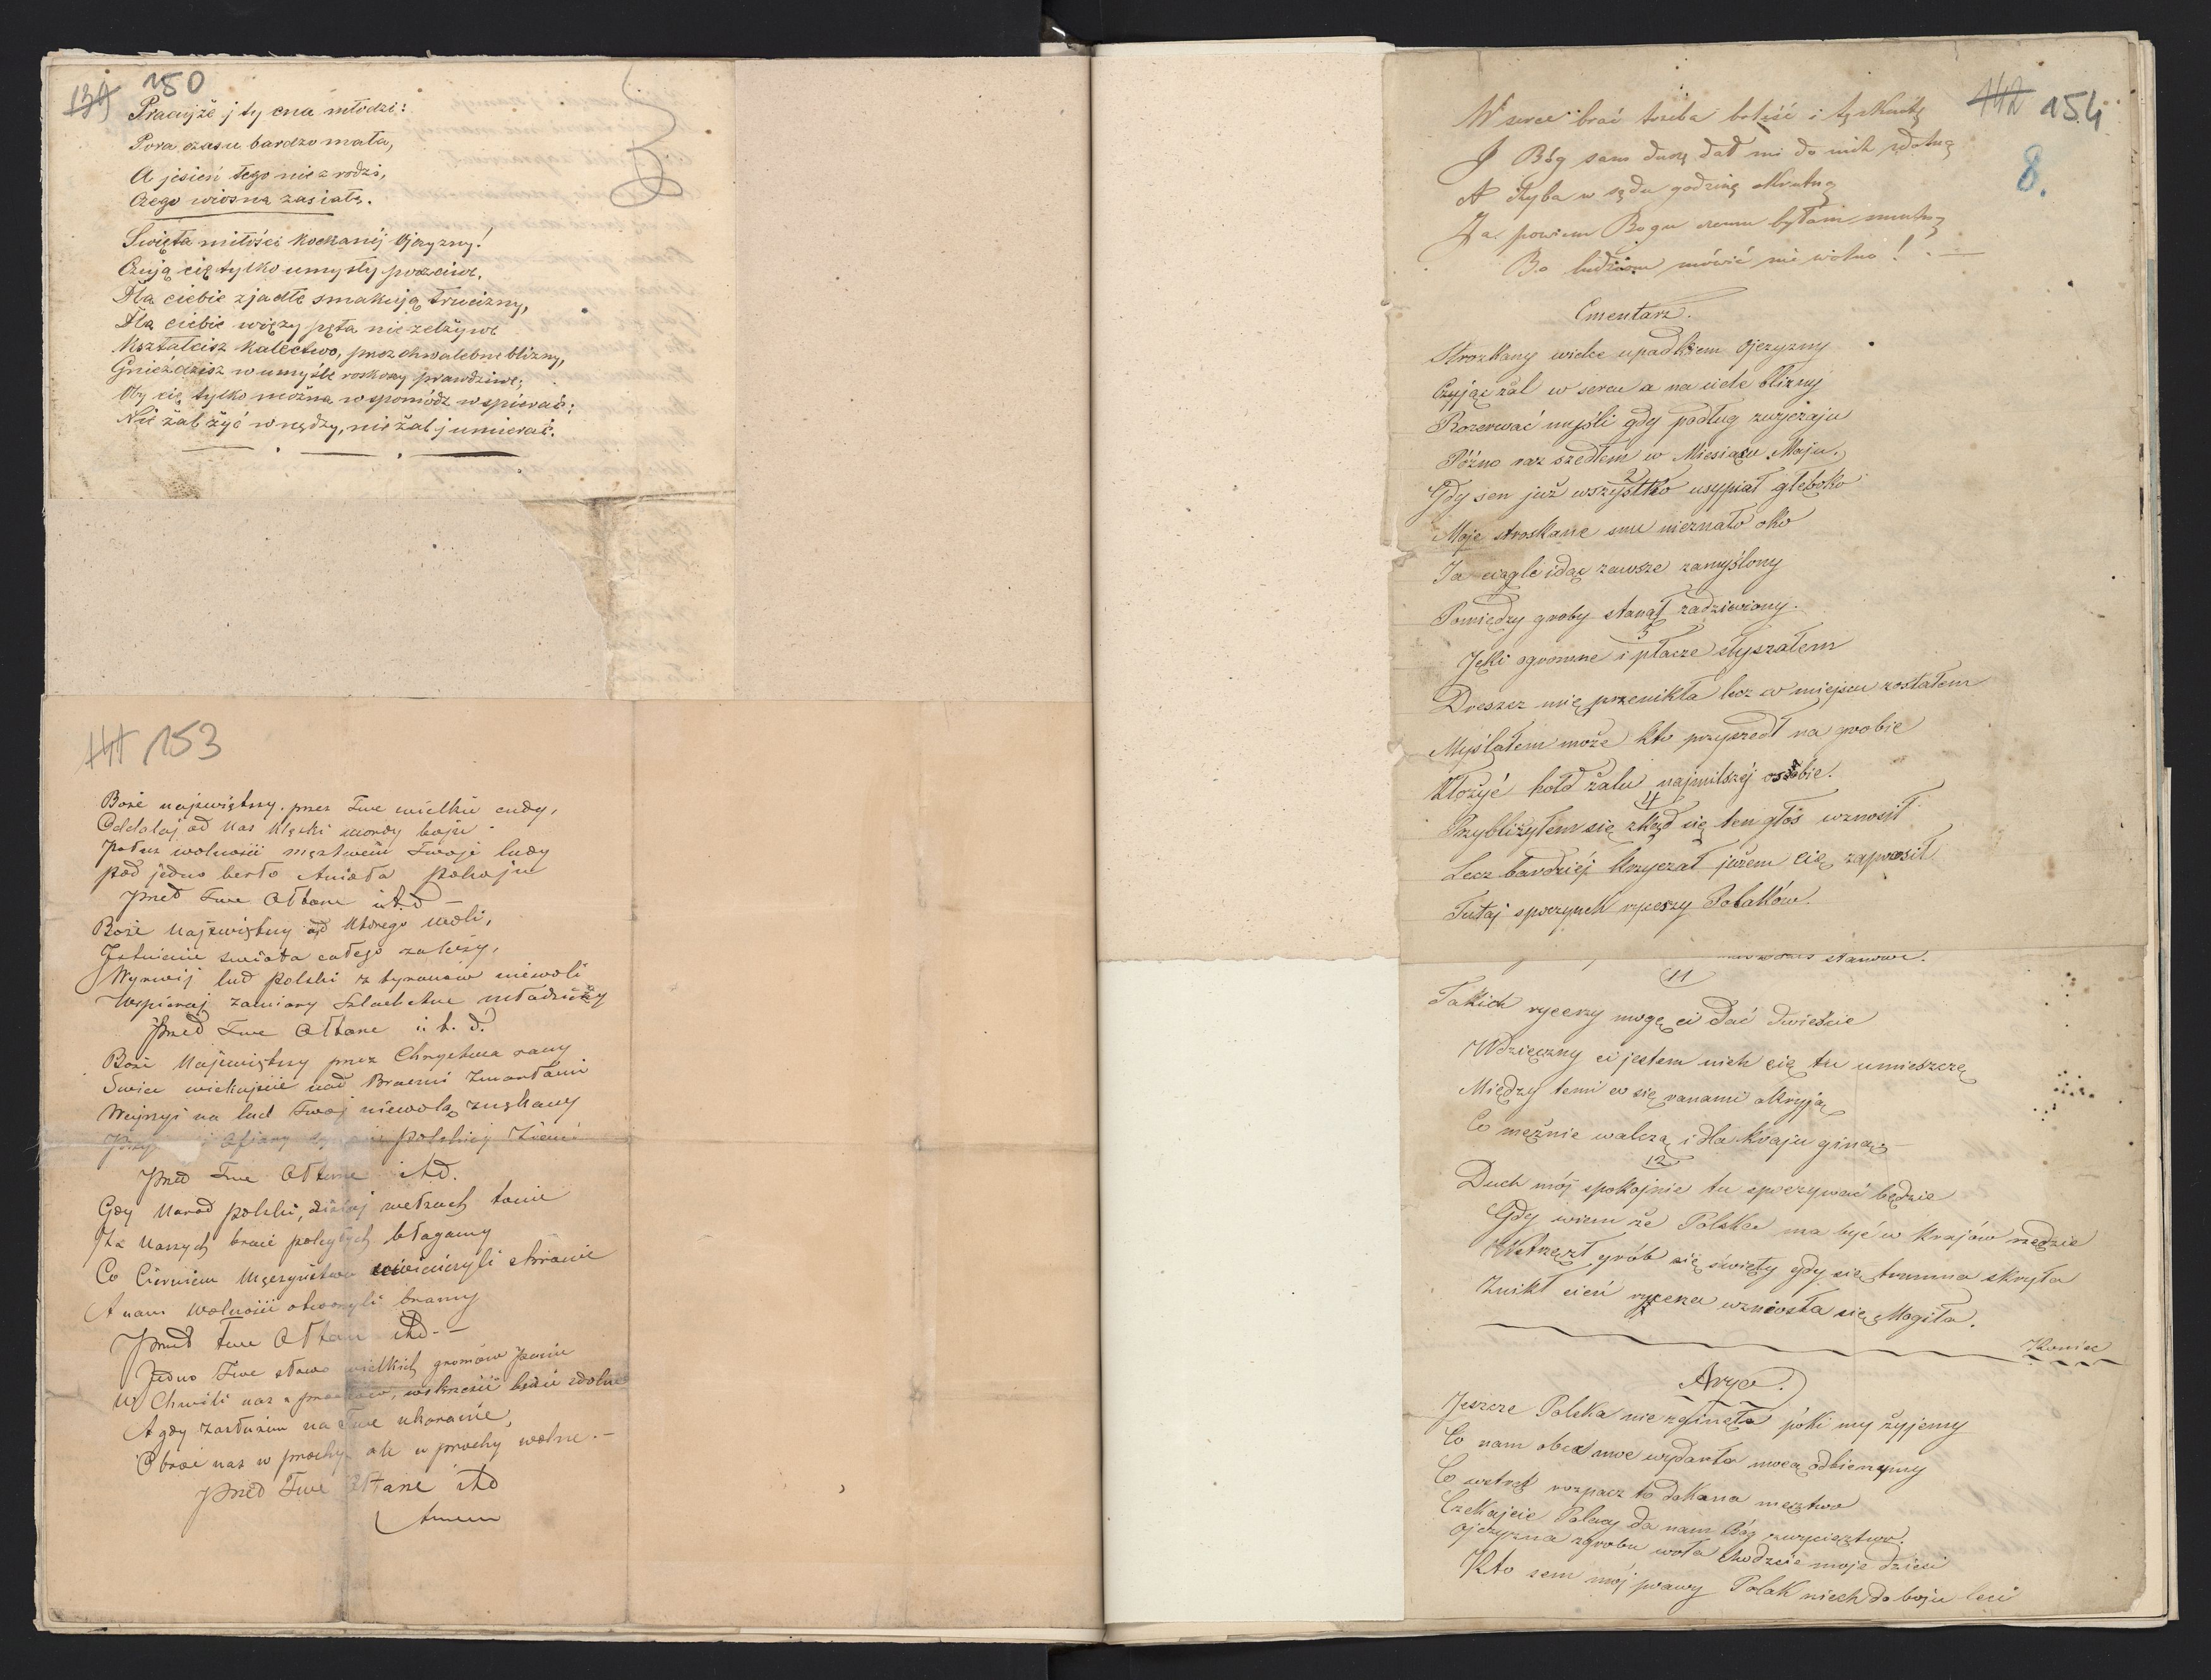 139 150
Pracujże j ty cna młodzi:
Pora czasu bardzo mała,
A jesień tego nie zrodzi,
Czego wiosna zasiała.
Święta miłości kochanéj Ojczyzny!
Czują cię tylko umysły poczciwe,
Dla ciebie zjadłe smakują trucizny,
Dla ciebie więzy pęta nie zelżywe
Kształcisz kalectwo, przez chwalebne blizny,
Gnieździsz w umyśle roskoszy prawdziwe;
Oby cię tylko można wspomódz wspierać;
Nie żal żyć w nędzy, nie żal j umierać.
141 153
Boże najświętszy, przez Twe wielkie cudy,
Oddalaj od nas klęski mordy boju
Połącz wolności męztwem Twoje ludy
pod jedno berło Anioła pokoju
przed Twe Ołtarze itd
Boże Najświętszy od którego woli,
Istnienie świata całego zależy,
Wyrwij lud polski z tyranów niewoli
Wspieraj zamiary szlachetne młodzieży
przed Twe Ołtarze i. t. d.
Boże Najświętszy przez Chrystusa rany
Świeć wiekujście nad Braćmi zmarłemi
Wejrzyj na lud Twój niewolą znękany
ofiary polskiej ziemi
przed Twe Ołtarze itd.
Gdy Naród polski, dzisiaj we łzach tonie
Za naszych braci poległych błagamy
Co Cierniem Męczeństwa uwieńczyli skronie
A nam wolności otworzyli bramy
przed twe Ołtarze itd.
Jedno Twe słowo wielkich gromów panie
W Chwili nas z prochów, wskrzesić będzie zdolne
A gdy zasłużem na Twe ukaranie,
Obróć nas w prochy ale w prochy wolne.
przed Twe Ołtarze itd
Amen
142 154
8.
W serce brać trzeba boleść i tęsknotę
I Bóg sam duszę dał mi do nich zdolną
A chyba w sądu godzinę okrutną
Ja powiem Bogu czemu byłam smutną
Bo ludziom mówić nie wolno!
Cmentarz.
Stroskany wielce upadkiem Ojczyzny
Czując żal w sercu a na ciele blizny
Rozerwać myśli gdy podług zwyczaju
Późno raz szedłem w Miesiącu Maju.
2
Gdy sen już wszystko usypiał głęboko
Moje stroskane snu nieznało oko
Ja ciągle idąc zawsze zamyślony
Pomiędzy groby stanął zadziwiony.
3
Jęki ogromne i płacze słyszałem
Dreszcz mię przenikła lecz w miejscu zostałem
Myślałem może kto przyszedł na grobie
Złożyć hołd żalu najmilszéj osobie.
4
Przybliżyłem się zkąd się ten głos wznosił
Lecz bardziéj krzyczał jużem cię zaprosił
Tutaj spoczynek rzeszy Polaków.
stanowi.
11
Takich rycerzy mogę ci dać dwieście
Wdzięczny ci jestem niech się tu umieszczę
Między temi co się ranami okryją
Co mężnie walczą i dla kraju giną
12
Duch mój spokojnie tu spoczywać będzie
Gdy wiem że Polska ma być w krajów rzędzie
Wstrząsł grób się święty gdy się trumna skryła
Znikł cień rycerza wzniosła się Mogiła.
Koniec
Arya.
Jeszcze Polska nie zginęła póki my żyjemy
Co nam obca moc wydarła mocą odbierzymy
Co wstręt rozpacz to dokona męztwo
Czekajcie Polacy da nam Bóg zwycieztwo.
Ojczyzna zgrobu woła chodzcie moje dzieci
Kto sem mój prawy Polak niech do boju leci